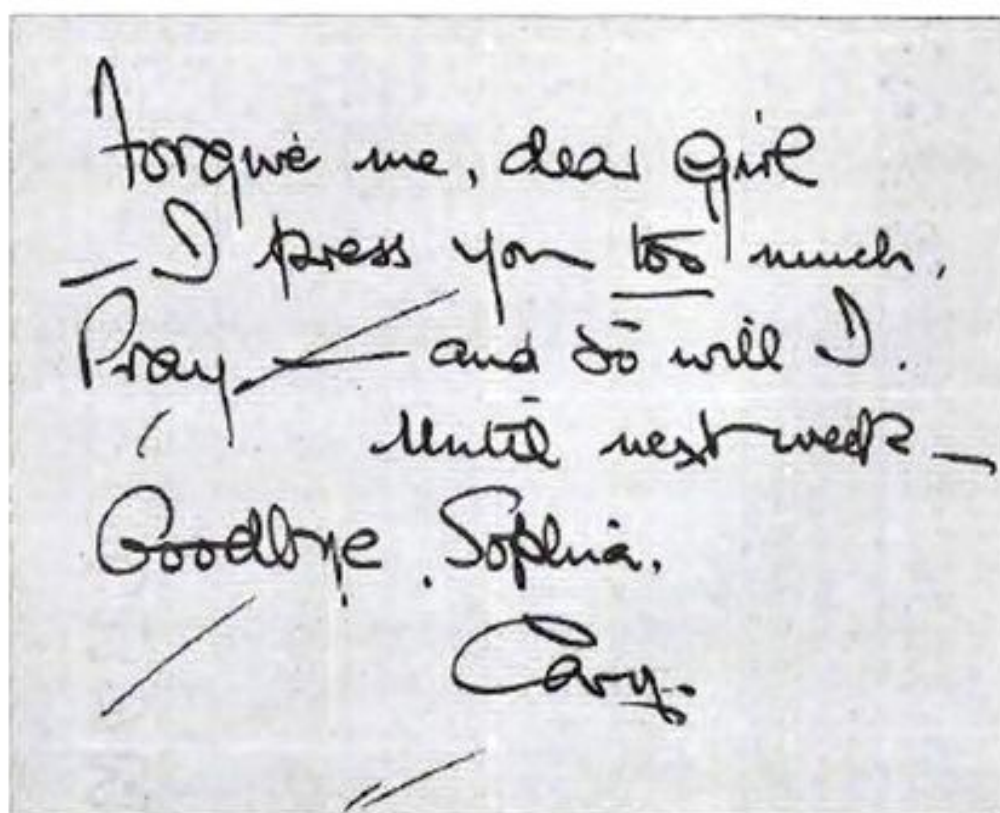 Forgive me, dear Girl
— I press you too much.
Pray — and so will I.
Until next week —
Goodbye, Sophia.
Cary.